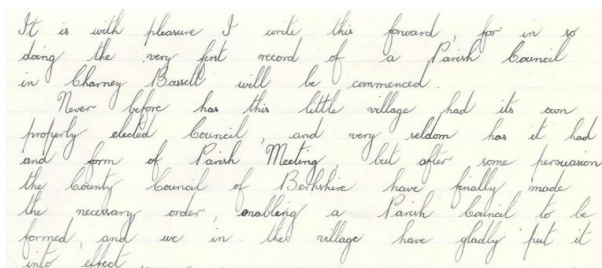 It is with pleasure I write this forward, for in so
doing the very first record of a Parish Council
in Charney Bassett will be commenced.
Never before has this little village had its own
properly elected Council, and very seldom has it had
and form of Parish Meeting, but after some persuasion
the County Council of Berkshire have finally made
the necessary order, enabling a Parish Council to be
formed, and we in the village have gladly put it
into effect